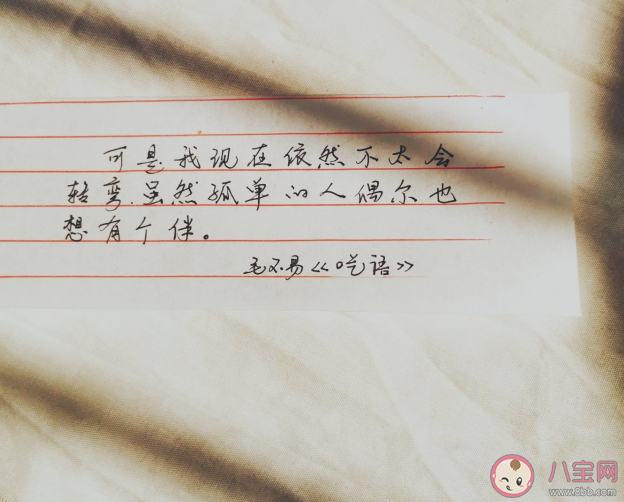 可是我现在依然不太会
转弯.虽然孤单的人偶尔也
想有个伴。
毛不易《呓语》
八宝网
www.8bb.com